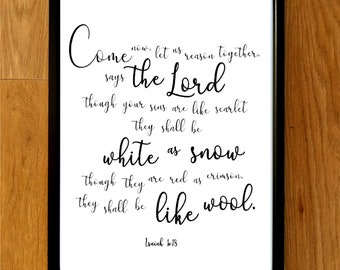 Come now, let us reason together,
says the Lord
though your sins are like scarlet
they shall be
white as snow
though they are red as crimson,
they shall be like wool.
Isaiah 1:18